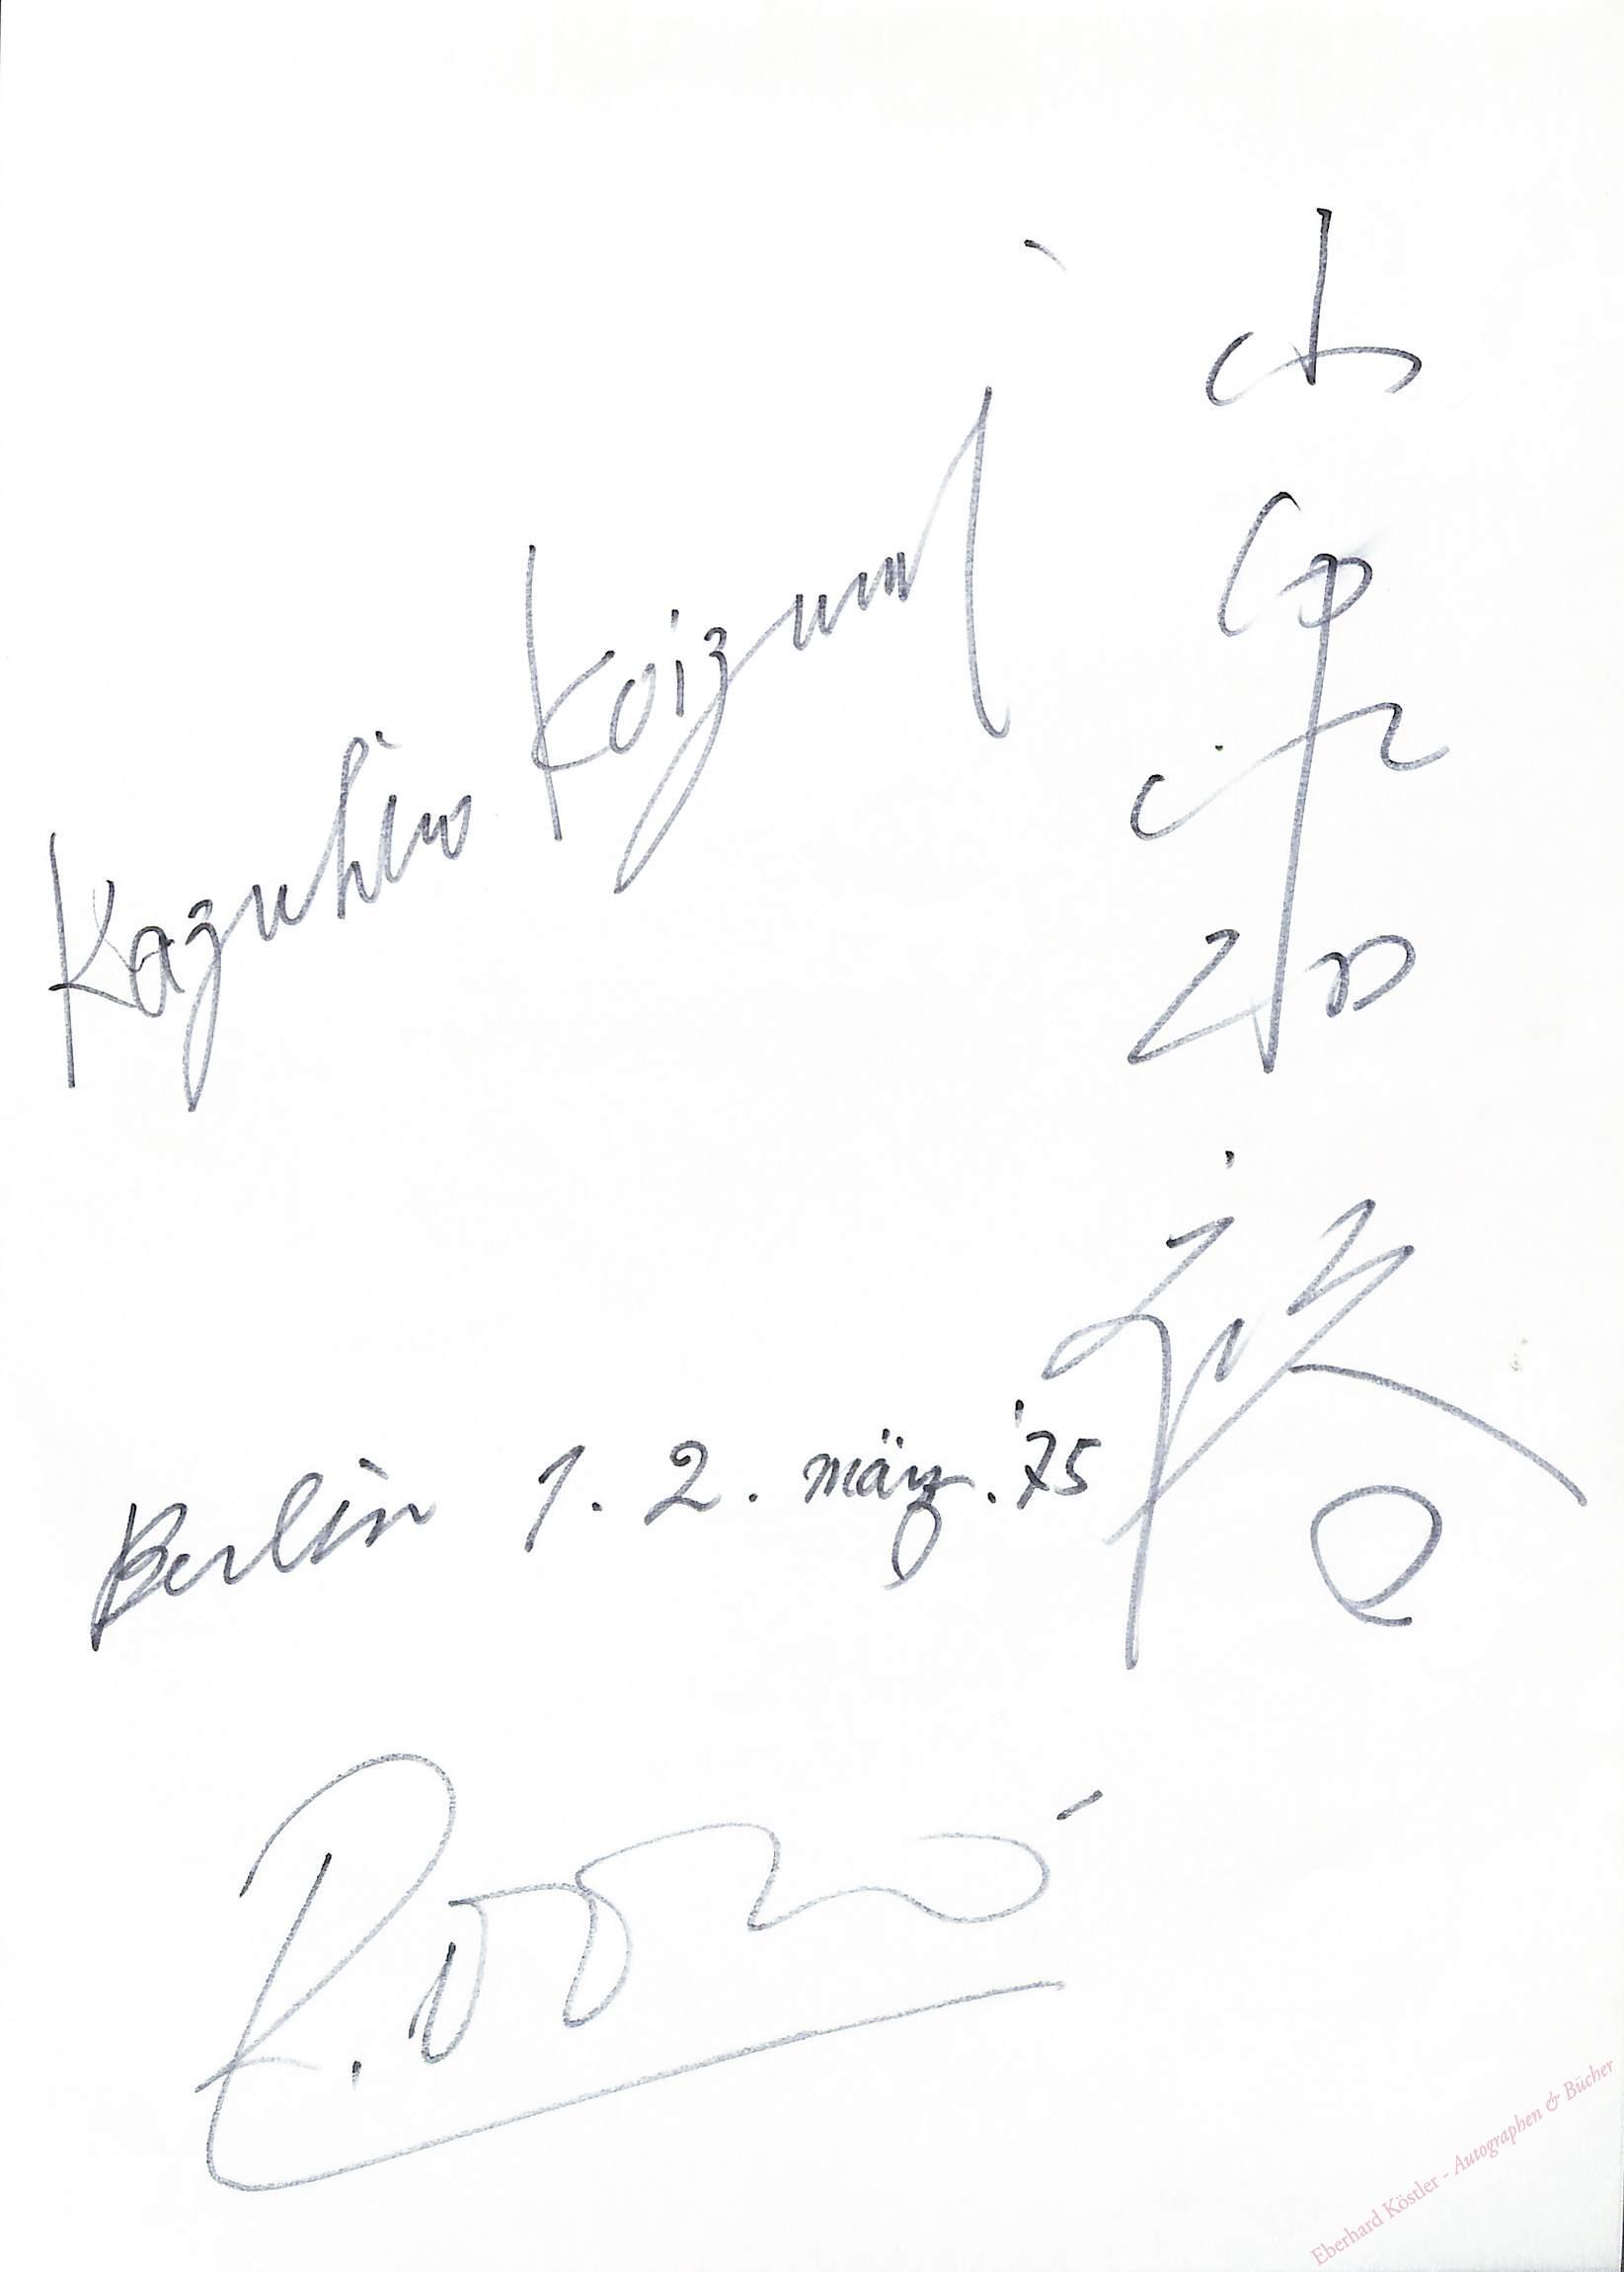 Kazuhiro Koizumi
小
泉
和
裕
Berlin 1. 2. märz. '75
Eberhard Köstler - Autographen & Bücher